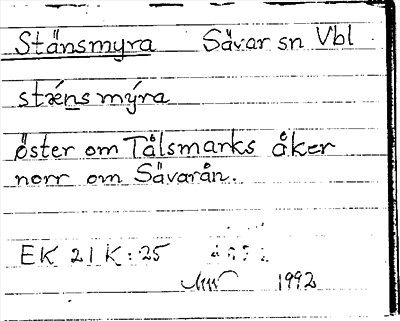 Stänsmyra Sävar sn Vbl
stǽns mýra
öster om Tålsmarks åker
norr om Sävarån.
EK 21K:25
1992